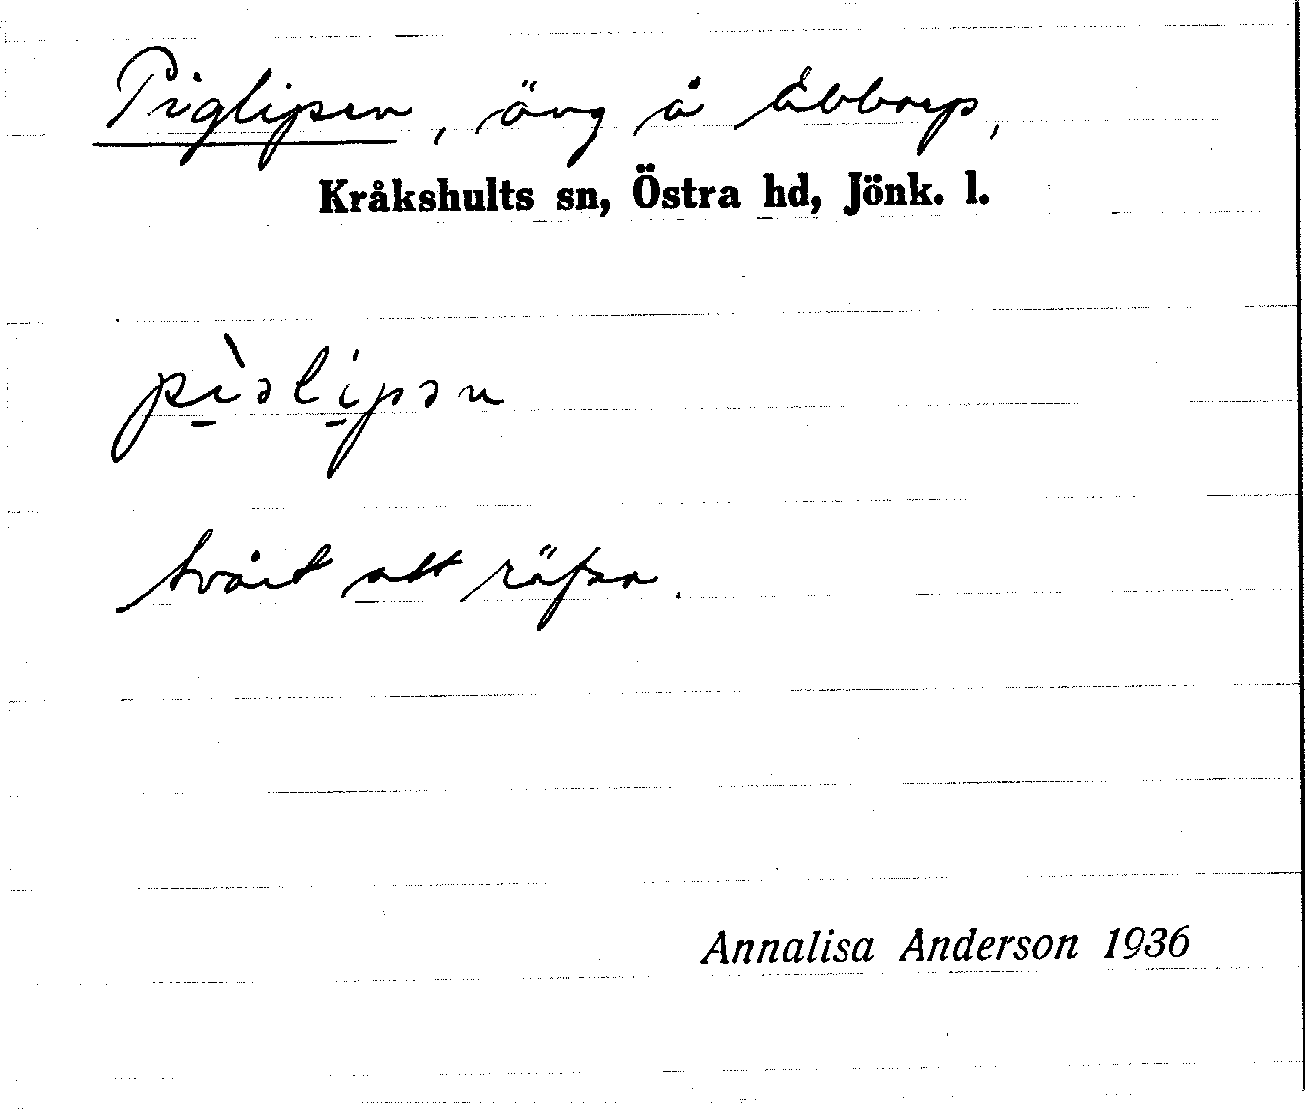 Piglipen, äng å Åbborp,
Kråkshults sn, Östra hd, Jönk. l.
pì̠əli̠pən
svårt att räfsa.
Annalisa Anderson 1936